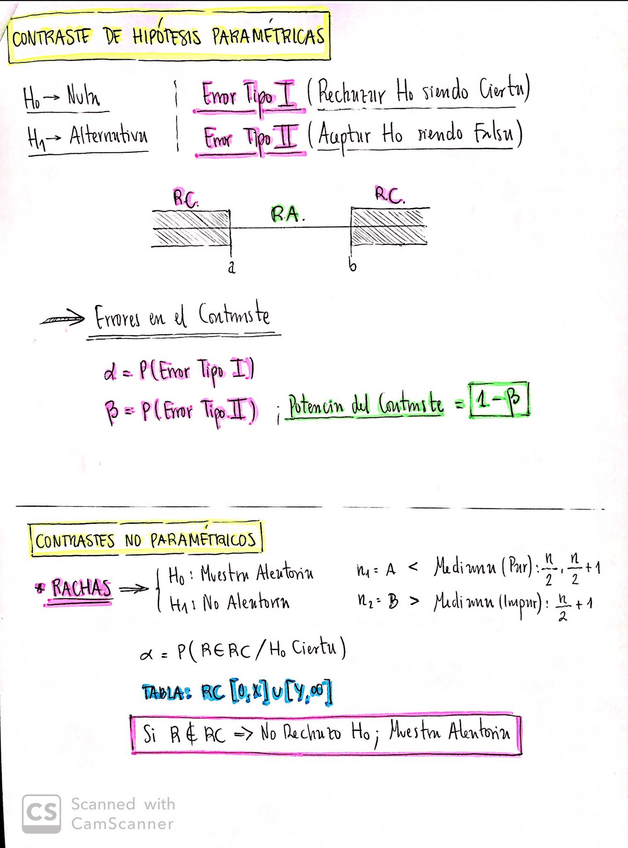 CONTRASTE DE HIPÓTESIS PARAMÉTRICAS
H₀ → Nula
H₁ → Alternativa
Error Tipo I (Rechazar H₀ siendo Cierta)
Error Tipo II (Aceptar H₀ siendo Falsa)
RC. RA. RC.
a b
⇒ Errores en el Contraste
α = P(Error Tipo I)
β = P(Error Tipo II) ; Potencia del Contraste = 1-β
CONTRASTES NO PARAMÉTRICOS
* RACHAS ⇒ { H₀ : Muestra Aleatoria
H₁ : No Aleatoria
n₁ = A < Mediana (Par): n/2, n/2 + 1
n₂ = B > Mediana (Impar): n/2 + 1
α = P(R∈RC / H₀ Cierta)
TABLA: RC [0,X] ∪ [Y,∞]
Si R ∉ RC => No Rechazo H₀ ; Muestra Aleatoria
CS Scanned with
CamScanner